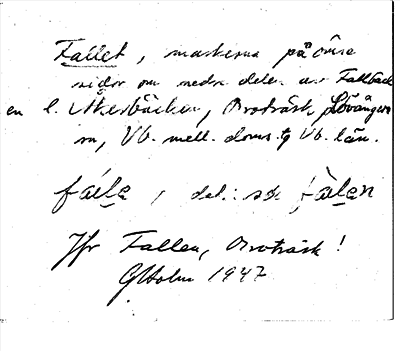 Fallet, markerna på östra
sidan om nedre delen av Fallbäck
en l. Åkerbäcken, Broträsk Lövångers
sn, Vb. mell. doms. tg Vb. län.
fále, det: sek fàlen
Jfr Fallen, Broträsk!
GHolm 1947